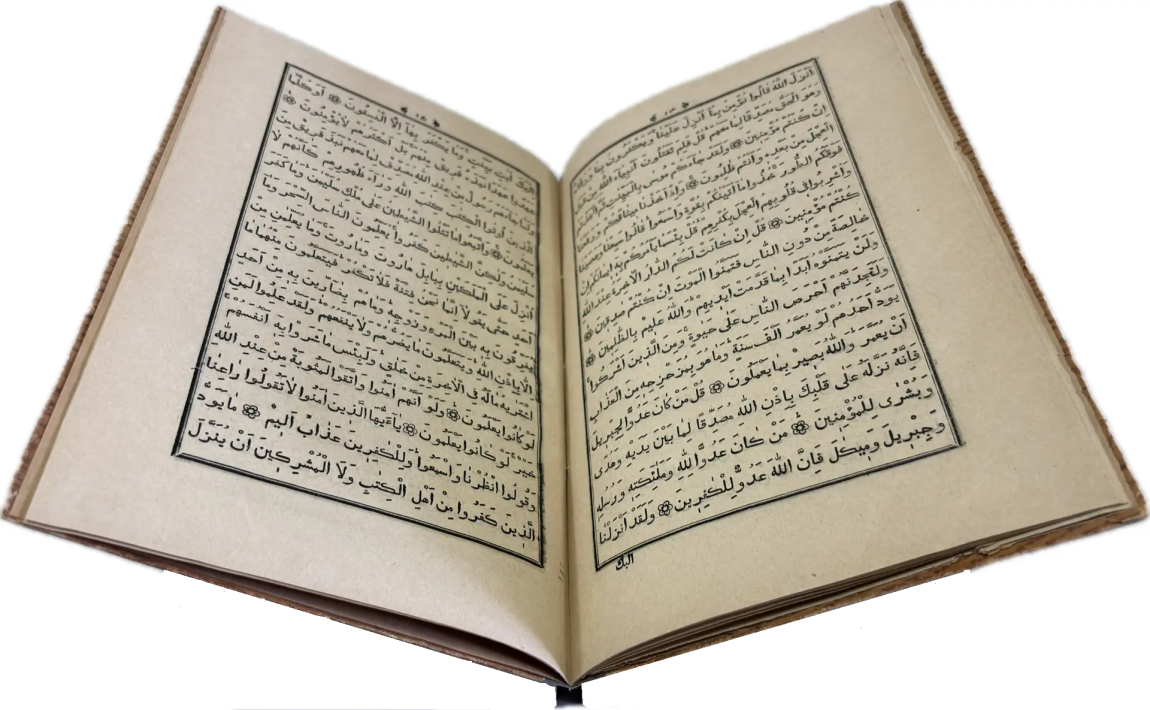 اَنْزَلَ اللّٰهُ قَالُوا نُؤْمِنُ بِمَا اُنْزِلَ عَلَيْنَا وَيَكْفُرُونَ بِمَا وَرَاءَهُ
وَهُوَ الْحَقُّ مُصَدِّقًا لِمَا مَعَهُمْ قُلْ فَلِمَ تَقْتُلُونَ اَنْبِيَاءَ اللّٰهِ مِنْ قَبْلُ
اِنْ كُنْتُمْ مُؤْمِنِينَ ۞ وَلَقَدْ جَاءَكُمْ مُوسٰى بِالْبَيِّنٰتِ ثُمَّ اتَّخَذْتُمُ
الْعِجْلَ مِنْ بَعْدِهِ وَاَنْتُمْ ظٰلِمُونَ ۞ وَاِذْ اَخَذْنَا مِيثَاقَكُمْ وَرَفَعْنَا
فَوْقَكُمُ الطُّورَ خُذُوا مَا اٰتَيْنٰكُمْ بِقُوَّةٍ وَاسْمَعُوا قَالُوا سَمِعْنَا وَعَصَيْنَا
وَاُشْرِبُوا فِي قُلُوبِهِمُ الْعِجْلَ بِكُفْرِهِمْ قُلْ بِئْسَمَا يَأْمُرُكُمْ بِهِ اِيمَانُكُمْ اِنْ
كُنْتُمْ مُؤْمِنِينَ ۞ قُلْ اِنْ كَانَتْ لَكُمُ الدَّارُ الْاٰخِرَةُ عِنْدَ اللّٰهِ
خَالِصَةً مِنْ دُونِ النَّاسِ فَتَمَنَّوُا الْمَوْتَ اِنْ كُنْتُمْ صٰدِقِينَ ۞
وَلَنْ يَتَمَنَّوْهُ اَبَدًا بِمَا قَدَّمَتْ اَيْدِيهِمْ وَاللّٰهُ عَلِيمٌ بِالظّٰلِمِينَ ۞
وَلَتَجِدَنَّهُمْ اَحْرَصَ النَّاسِ عَلٰى حَيٰوةٍ وَمِنَ الَّذِينَ اَشْرَكُوا
يَوَدُّ اَحَدُهُمْ لَوْ يُعَمَّرُ اَلْفَ سَنَةٍ وَمَا هُوَ بِمُزَحْزِحِهِ مِنَ الْعَذَابِ
اَنْ يُعَمَّرَ وَاللّٰهُ بَصِيرٌ بِمَا يَعْمَلُونَ ۞ قُلْ مَنْ كَانَ عَدُوًّا لِجِبْرِيلَ
فَاِنَّهُ نَزَّلَهُ عَلٰى قَلْبِكَ بِاِذْنِ اللّٰهِ مُصَدِّقًا لِمَا بَيْنَ يَدَيْهِ وَهُدًى
وَبُشْرٰى لِلْمُؤْمِنِينَ ۞ مَنْ كَانَ عَدُوًّا لِلّٰهِ وَمَلٰئِكَتِهِ وَرُسُلِهِ
وَجِبْرِيلَ وَمِيكٰلَ فَاِنَّ اللّٰهَ عَدُوٌّ لِلْكٰفِرِينَ ۞ وَلَقَدْ اَنْزَلْنَا
اليك
١٥
اِلَيْكَ اٰيٰتٍ بَيِّنٰتٍ وَمَا يَكْفُرُ بِهَا اِلَّا الْفٰسِقُونَ ۞ اَوَكُلَّمَا
عٰهَدُوا عَهْدًا نَبَذَهُ فَرِيقٌ مِنْهُمْ بَلْ اَكْثَرُهُمْ لَا يُؤْمِنُونَ ۞
وَلَمَّا جَاءَهُمْ رَسُولٌ مِنْ عِنْدِ اللّٰهِ مُصَدِّقٌ لِمَا مَعَهُمْ نَبَذَ فَرِيقٌ مِنَ
الَّذِينَ اُوتُوا الْكِتٰبَ كِتٰبَ اللّٰهِ وَرَاءَ ظُهُورِهِمْ كَاَنَّهُمْ لَا
يَعْلَمُونَ ۞ وَاتَّبَعُوا مَا تَتْلُوا الشَّيٰطِينُ عَلٰى مُلْكِ سُلَيْمٰنَ وَمَا كَفَرَ
سُلَيْمٰنُ وَلٰكِنَّ الشَّيٰطِينَ كَفَرُوا يُعَلِّمُونَ النَّاسَ السِّحْرَ وَمَا
اُنْزِلَ عَلَى الْمَلَكَيْنِ بِبَابِلَ هَارُوتَ وَمَارُوتَ وَمَا يُعَلِّمٰنِ مِنْ
اَحَدٍ حَتّٰى يَقُولَا اِنَّمَا نَحْنُ فِتْنَةٌ فَلَا تَكْفُرْ فَيَتَعَلَّمُونَ مِنْهُمَا مَا
يُفَرِّقُونَ بِهِ بَيْنَ الْمَرْءِ وَزَوْجِهِ وَمَا هُمْ بِضَارِّينَ بِهِ مِنْ اَحَدٍ
اِلَّا بِاِذْنِ اللّٰهِ وَيَتَعَلَّمُونَ مَا يَضُرُّهُمْ وَلَا يَنْفَعُهُمْ وَلَقَدْ عَلِمُوا لَمَنِ
اشْتَرٰيهُ مَالَهُ فِي الْاٰخِرَةِ مِنْ خَلَاقٍ وَلَبِئْسَ مَا شَرَوْا بِهِ اَنْفُسَهُمْ
لَوْ كَانُوا يَعْلَمُونَ ۞ وَلَوْ اَنَّهُمْ اٰمَنُوا وَاتَّقَوْا لَمَثُوبَةٌ مِنْ عِنْدِ اللّٰهِ
خَيْرٌ لَوْ كَانُوا يَعْلَمُونَ ۞ يَاءَيُّهَا الَّذِينَ اٰمَنُوا لَا تَقُولُوا رَاعِنَا
وَقُولُوا انْظُرْنَا وَاسْمَعُوا وَلِلْكٰفِرِينَ عَذَابٌ اَلِيمٌ ۞ مَا يَوَدُّ
الَّذِينَ كَفَرُوا مِنْ اَهْلِ الْكِتٰبِ وَلَا الْمُشْرِكِينَ اَنْ يُنَزَّلَ